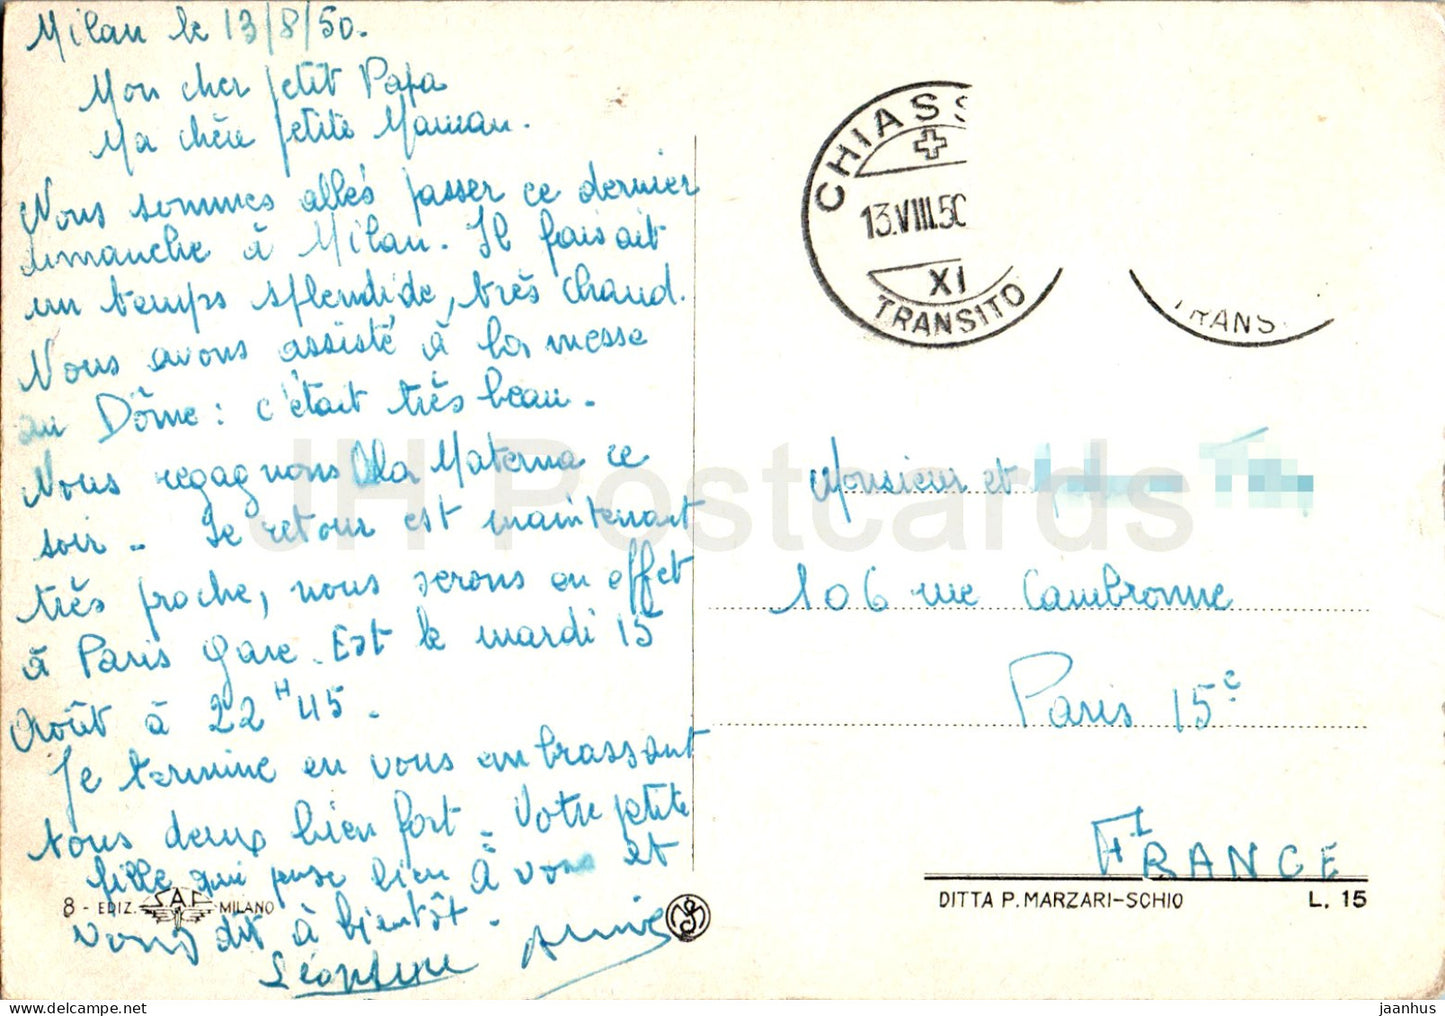 Milan le 13/8/50.
Mon cher petit Papa
Ma chère petite Maman.
Nous sommes allés passer ce dernier
dimanche à Milan. Il faisait
un temps splendide, très chaud.
Nous avons assisté à la messe
au Dôme : c'était très beau.
Nous regagnons la Materna ce
soir. Le retour est maintenant
très proche, nous serons en effet
à Paris gare. Est le mardi 15
Août à 22 H 45.
Je termine en vous embrassant
tous deux bien fort. Votre petite
fille qui pense bien à vous et
vous dit à bientôt.
8 - EDIZ. SAF MILANO
CHIASS
13.VIII.50
XI
TRANSITO
TRANS
Monsieur et
106 rue Cambronne
Paris 15e
FRANCE
DITTA P. MARZARI-SCHIO L. 15
JH Postcards
https://www.hipostcard.com
jaanhus